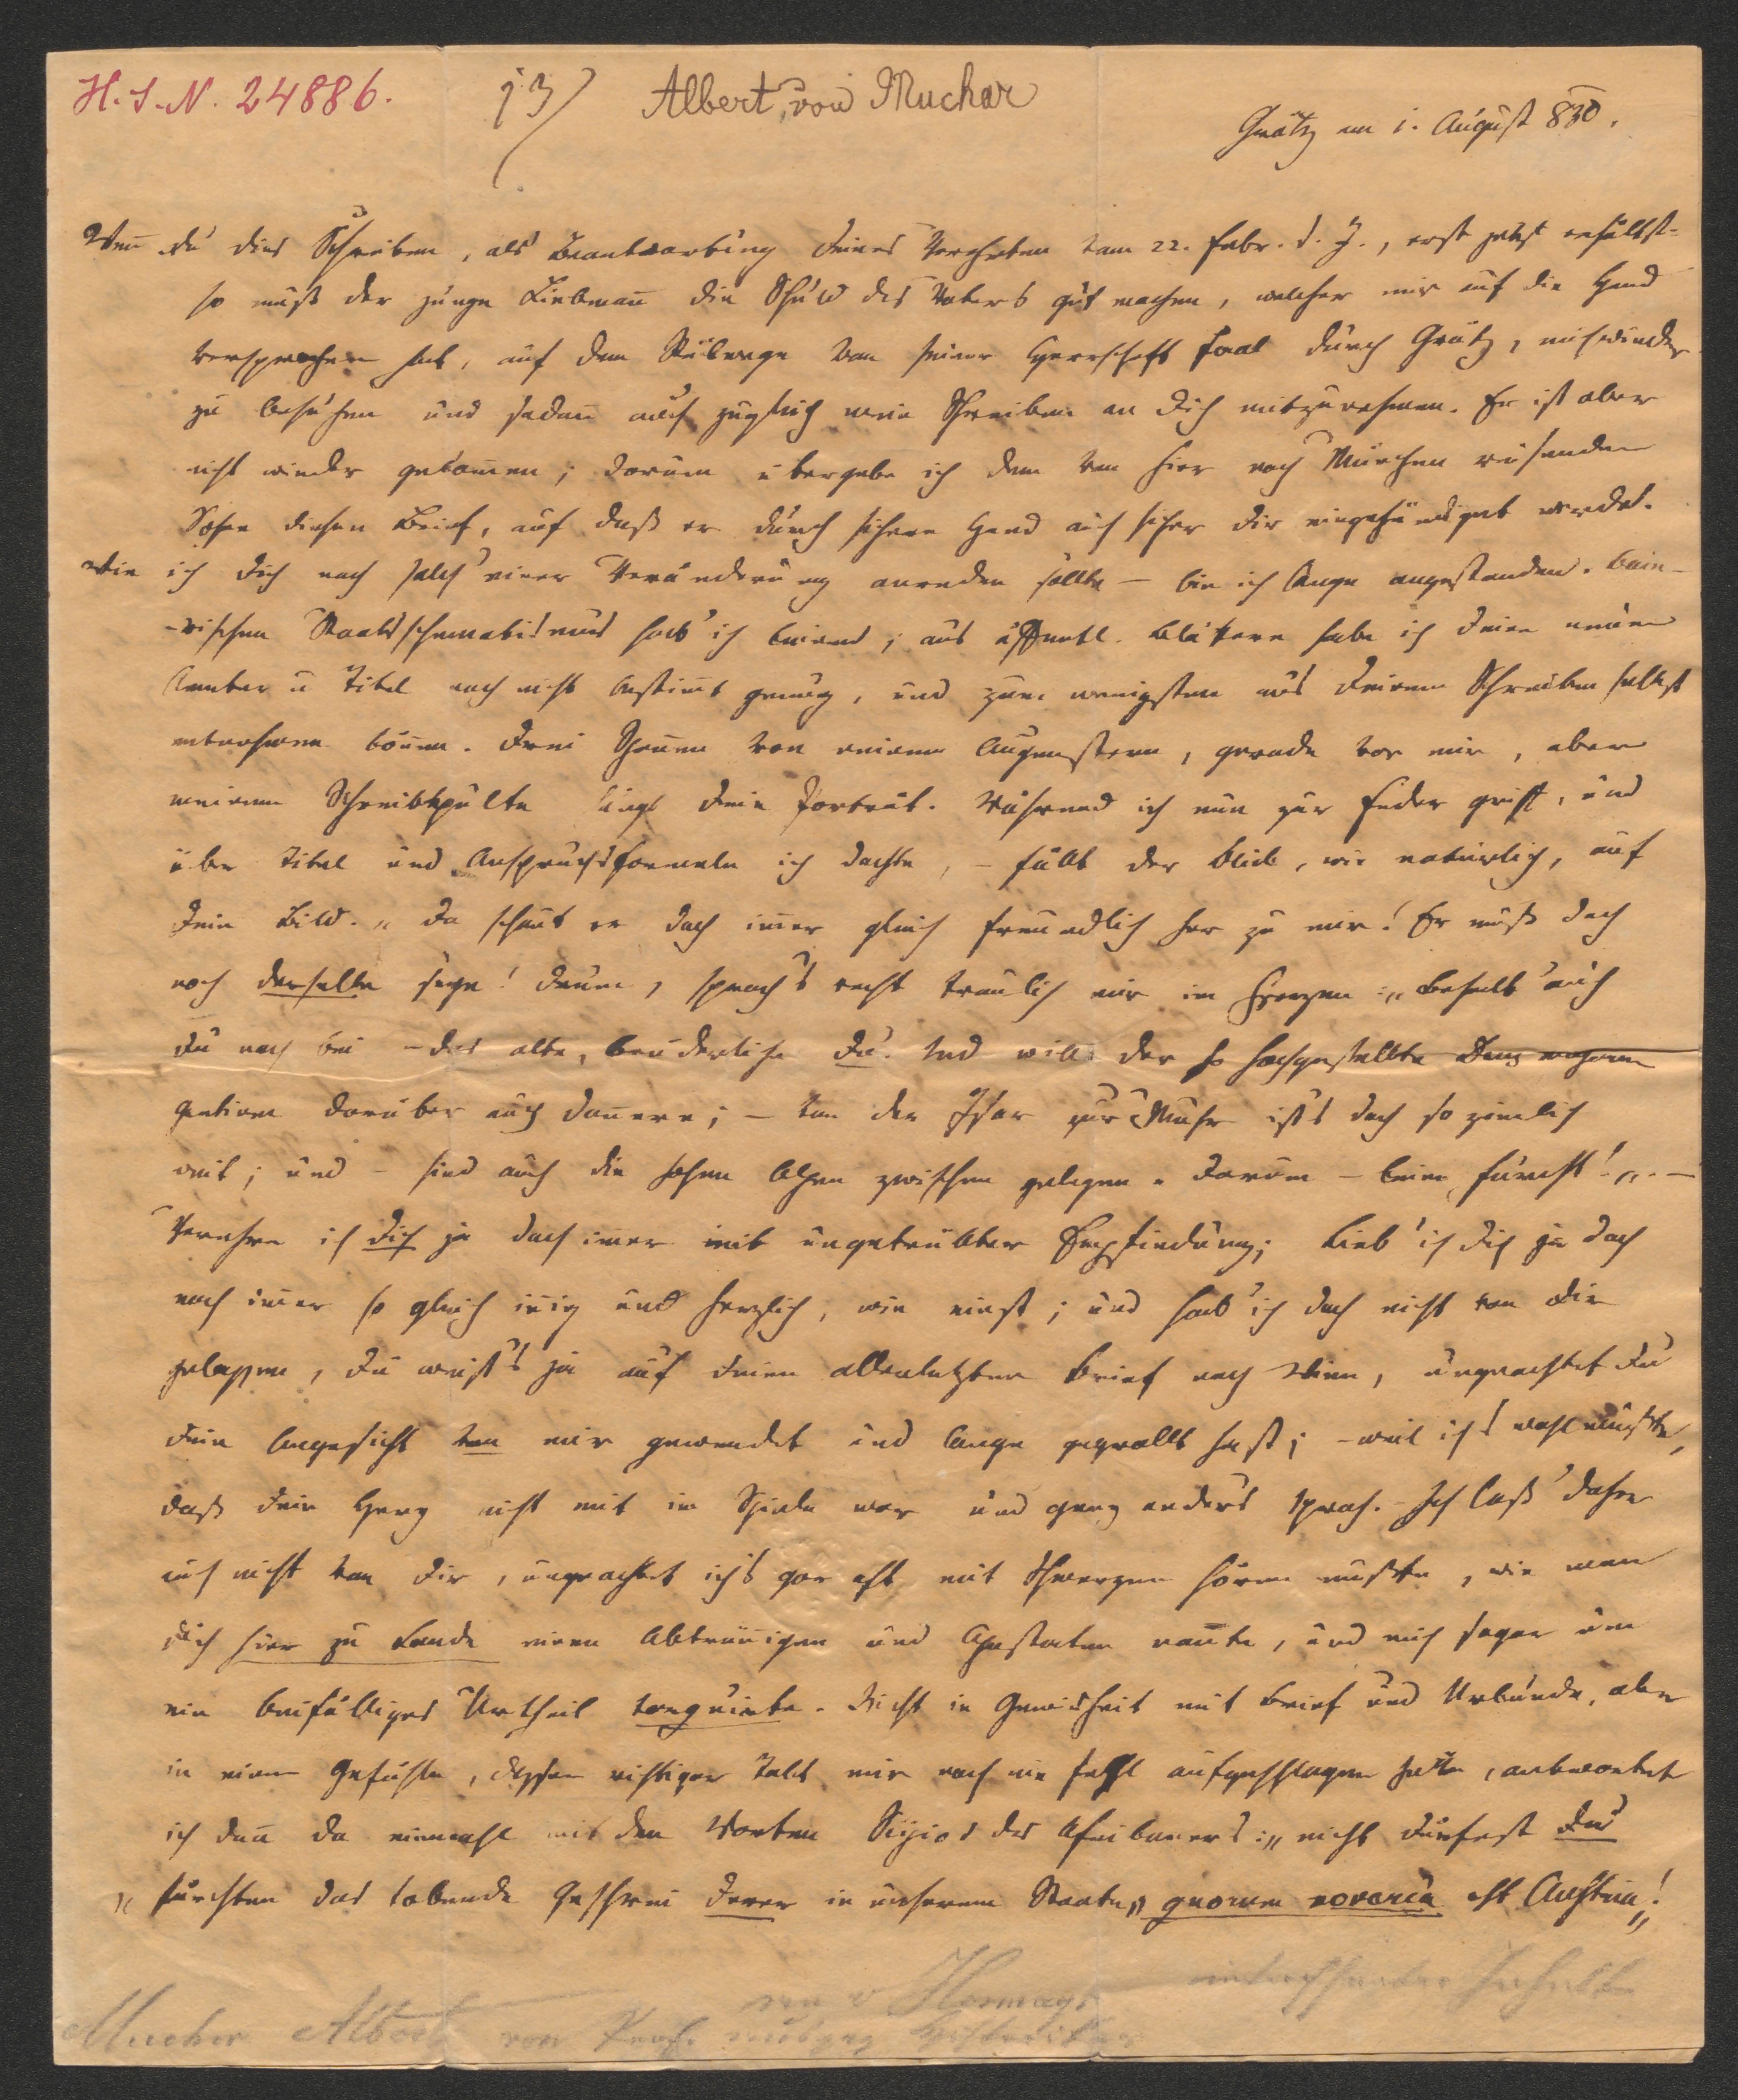 H.I.N. 24886. 13/ Albert von Muchar
Grätz am 1. August 830.
Wen̄ du dies Schreiben, als Beantwortung deines Verehrten vom 22. Febr. d. J., erst jetzt erhältst-
so muß der junge Liebman̄ die Schuld des Vaters gut machen, welcher mir auf die Hand
versprochen hat, auf dem Rückwege von seiner Herrschaft Faal durch Grätz, mich wieder
zu besuchen und sodan̄ auch zugleich mein Schreiben an dich mitzunehmen. Er ist aber
nicht wieder gekom̄en; darum übergebe ich dem von hier nach München reisenden
Sohne diesen Brief, auf daß er durch sichere Hand auch sicher dir eingehändiget werde.
Wie ich dich nach solch' einer Veränderung anreden sollte – bin ich lange angestanden. Baie-
-rischen Staatsschematismus hab' ich keinen; aus öffentl. Blättern habe ich deine neuen
Aemter u Titel noch nicht bestim̄t genug, und zum wenigsten aus deinem Schreiben selbst
entnehmen kön̄en. Drei Spannen von meinem Augenstern, gerade vor mir, ober
meinem Schreibpulte hängt dein Porträt. Während ich nun zur Feder griff, und
über Titel und Anspruchsformeln ich dachte, – fällt der Blick, wie natürlich, auf
dein Bild. „Da schaut er doch im̄er gleich freundlich her zu mir! Er muß doch
noch derselbe seyn! Drum, sprach's recht traulich mir im Herzen: „Behalt' auch
du noch bei – das alte, brüderliche Du. Und will der so hochgestellte
darüber auch don̄ern; – von der Isar zur Muhr ist's doch so ziemlich
weit; und – sind auch die hohen Alpen zwischen gelegen. Darum – keine Furcht!„. –
Verehre ich dich ja doch im̄er mit ungetrübter Empfindung; Lieb' ich dich ja doch
noch im̄er so gleich in̄ig und herzlich, wie einst; und hab' ich doch nicht von dir
gelassen, du weißt's ja auf deinen allerletzten Brief nach Wien, ungeachtet du
dein Angesicht von mir gewendet und lange gegrollt hast; – weil ich's wohl wußte,
daß dein Herz nicht mit im Spiele war und ganz anders sprach. – Ich laß' daher
auch nicht von dir, ungeachtet ich's gar oft mit Schmerzen hören mußte, wie man
dich hier zu Lande einen Abtrün̄igen und Apostaten nan̄te, und mich sogar um
ein beifälliges Urtheil torquirte. Nicht in Gewißheit mit Brief und Urkunde, aber
in einem Gefühle, dessen richtiger Takt mir noch nie fehl aufgeschlagen hatte, antwortet
ich dan̄ da einmahl mit den Worten Scipio's des Afrikaners: „nicht dürfest Du
„fürchten das tobende Geschrei derer in unserem Staate, quorum noverca est Austria!„
von v Hormayr
interessanter Inhalt
Muchar Albert von Prof. Historiker